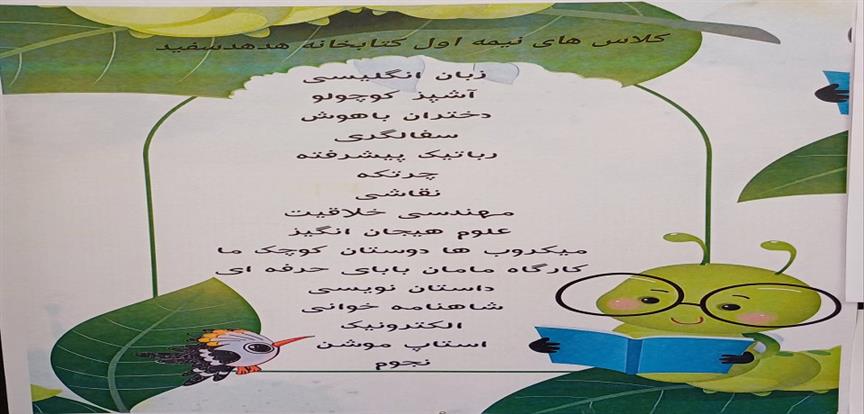 کلاس های نیمه اول کتابخانه هدهدسفید
زبان انگلیسی
آشپز کوچولو
دختران باهوش
سفالگری
رباتیک پیشرفته
چرتکه
نقاشی
مهندسی خلاقیت
علوم هیجان انگیز
میکروب ها دوستان کوچک ما
کارگاه مامان بابای حرفه ای
داستان نویسی
شاهنامه خوانی
الکترونیک
استاپ موشن
نجوم